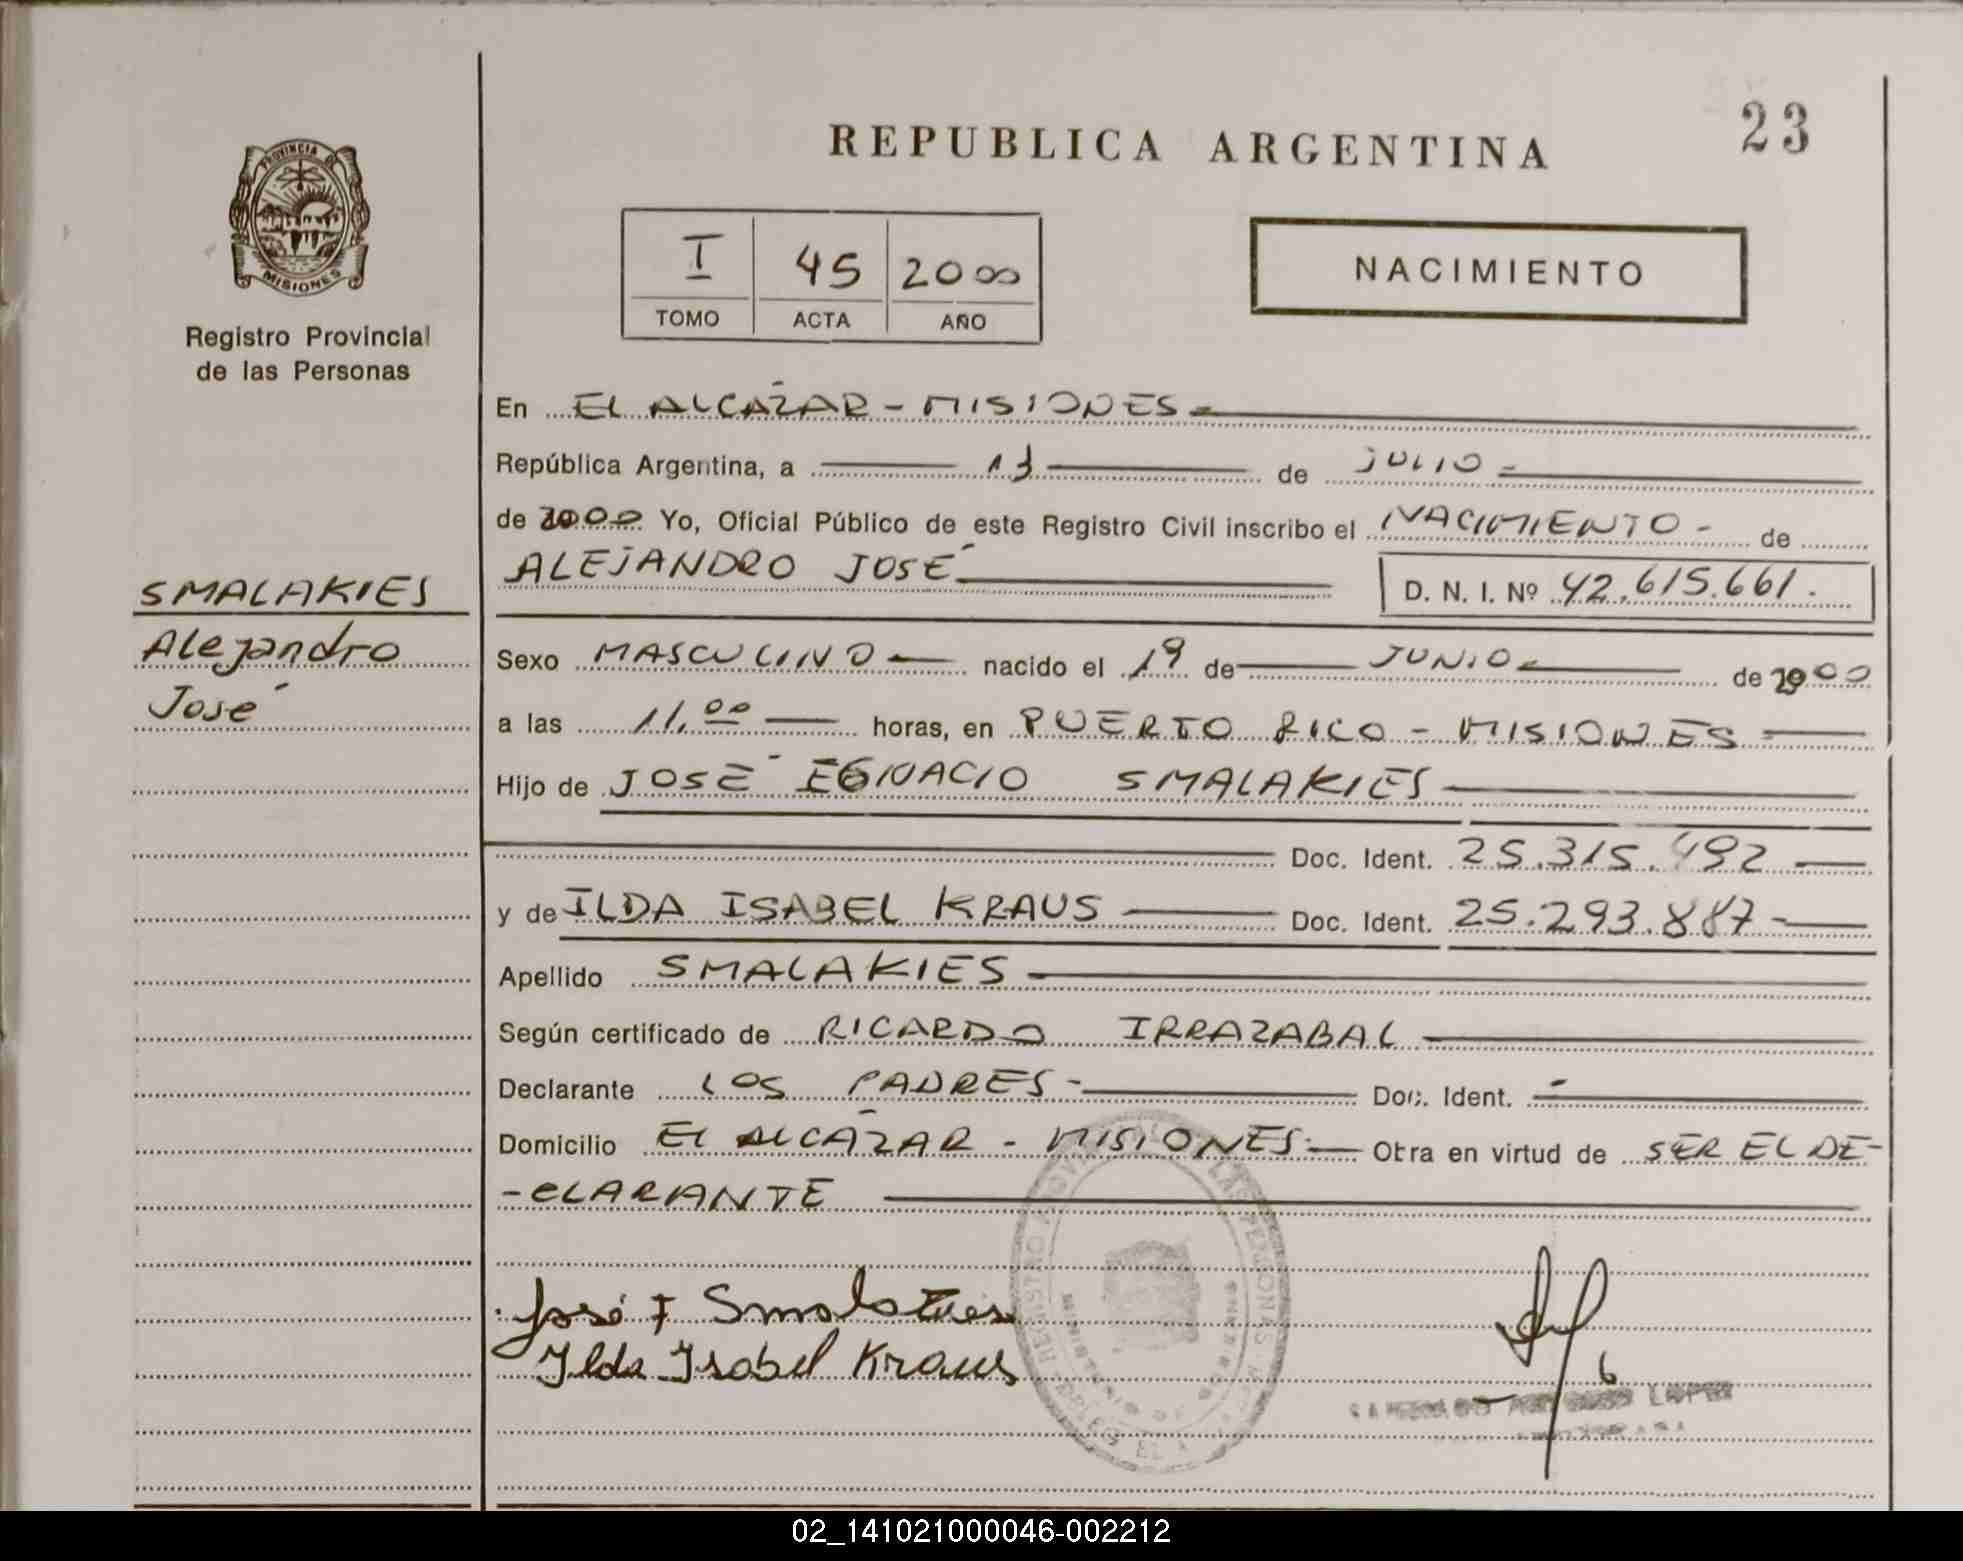 23
REPUBLICA ARGENTINA
PROVINCIA DE
MISIONES
Registro Provincial
de las Personas
I 45 2000
TOMO ACTA AÑO
NACIMIENTO
En EL ALCÁZAR - MISIONES -
República Argentina, a 13 de JULIO -
de 2000 Yo, Oficial Público de este Registro Civil inscribo el NACIMIENTO - de
ALEJANDRO JOSÉ D. N. I. Nº 42.615.661.
SMALAKIES
Alejandro
José
Sexo MASCULINO nacido el 19 de JUNIO - de 2000
a las 11,00 horas, en PUERTO RICO - MISIONES
Hijo de JOSÉ EGNACIO SMALAKIES
Doc. Ident. 25.315.492
y de ILDA ISABEL KRAUS Doc. Ident. 25.293.887 -
Apellido SMALAKIES
Según certificado de RICARDO IRRAZABAL
Declarante LOS PADRES - Doc. Ident. -
Domicilio El ALCÁZAR - MISIONES - Otra en virtud de SER EL DE-
-CLARANTE
José I Smalakies
Ilda Isabel Kraus
LOPEZ
02_141021000046-002212